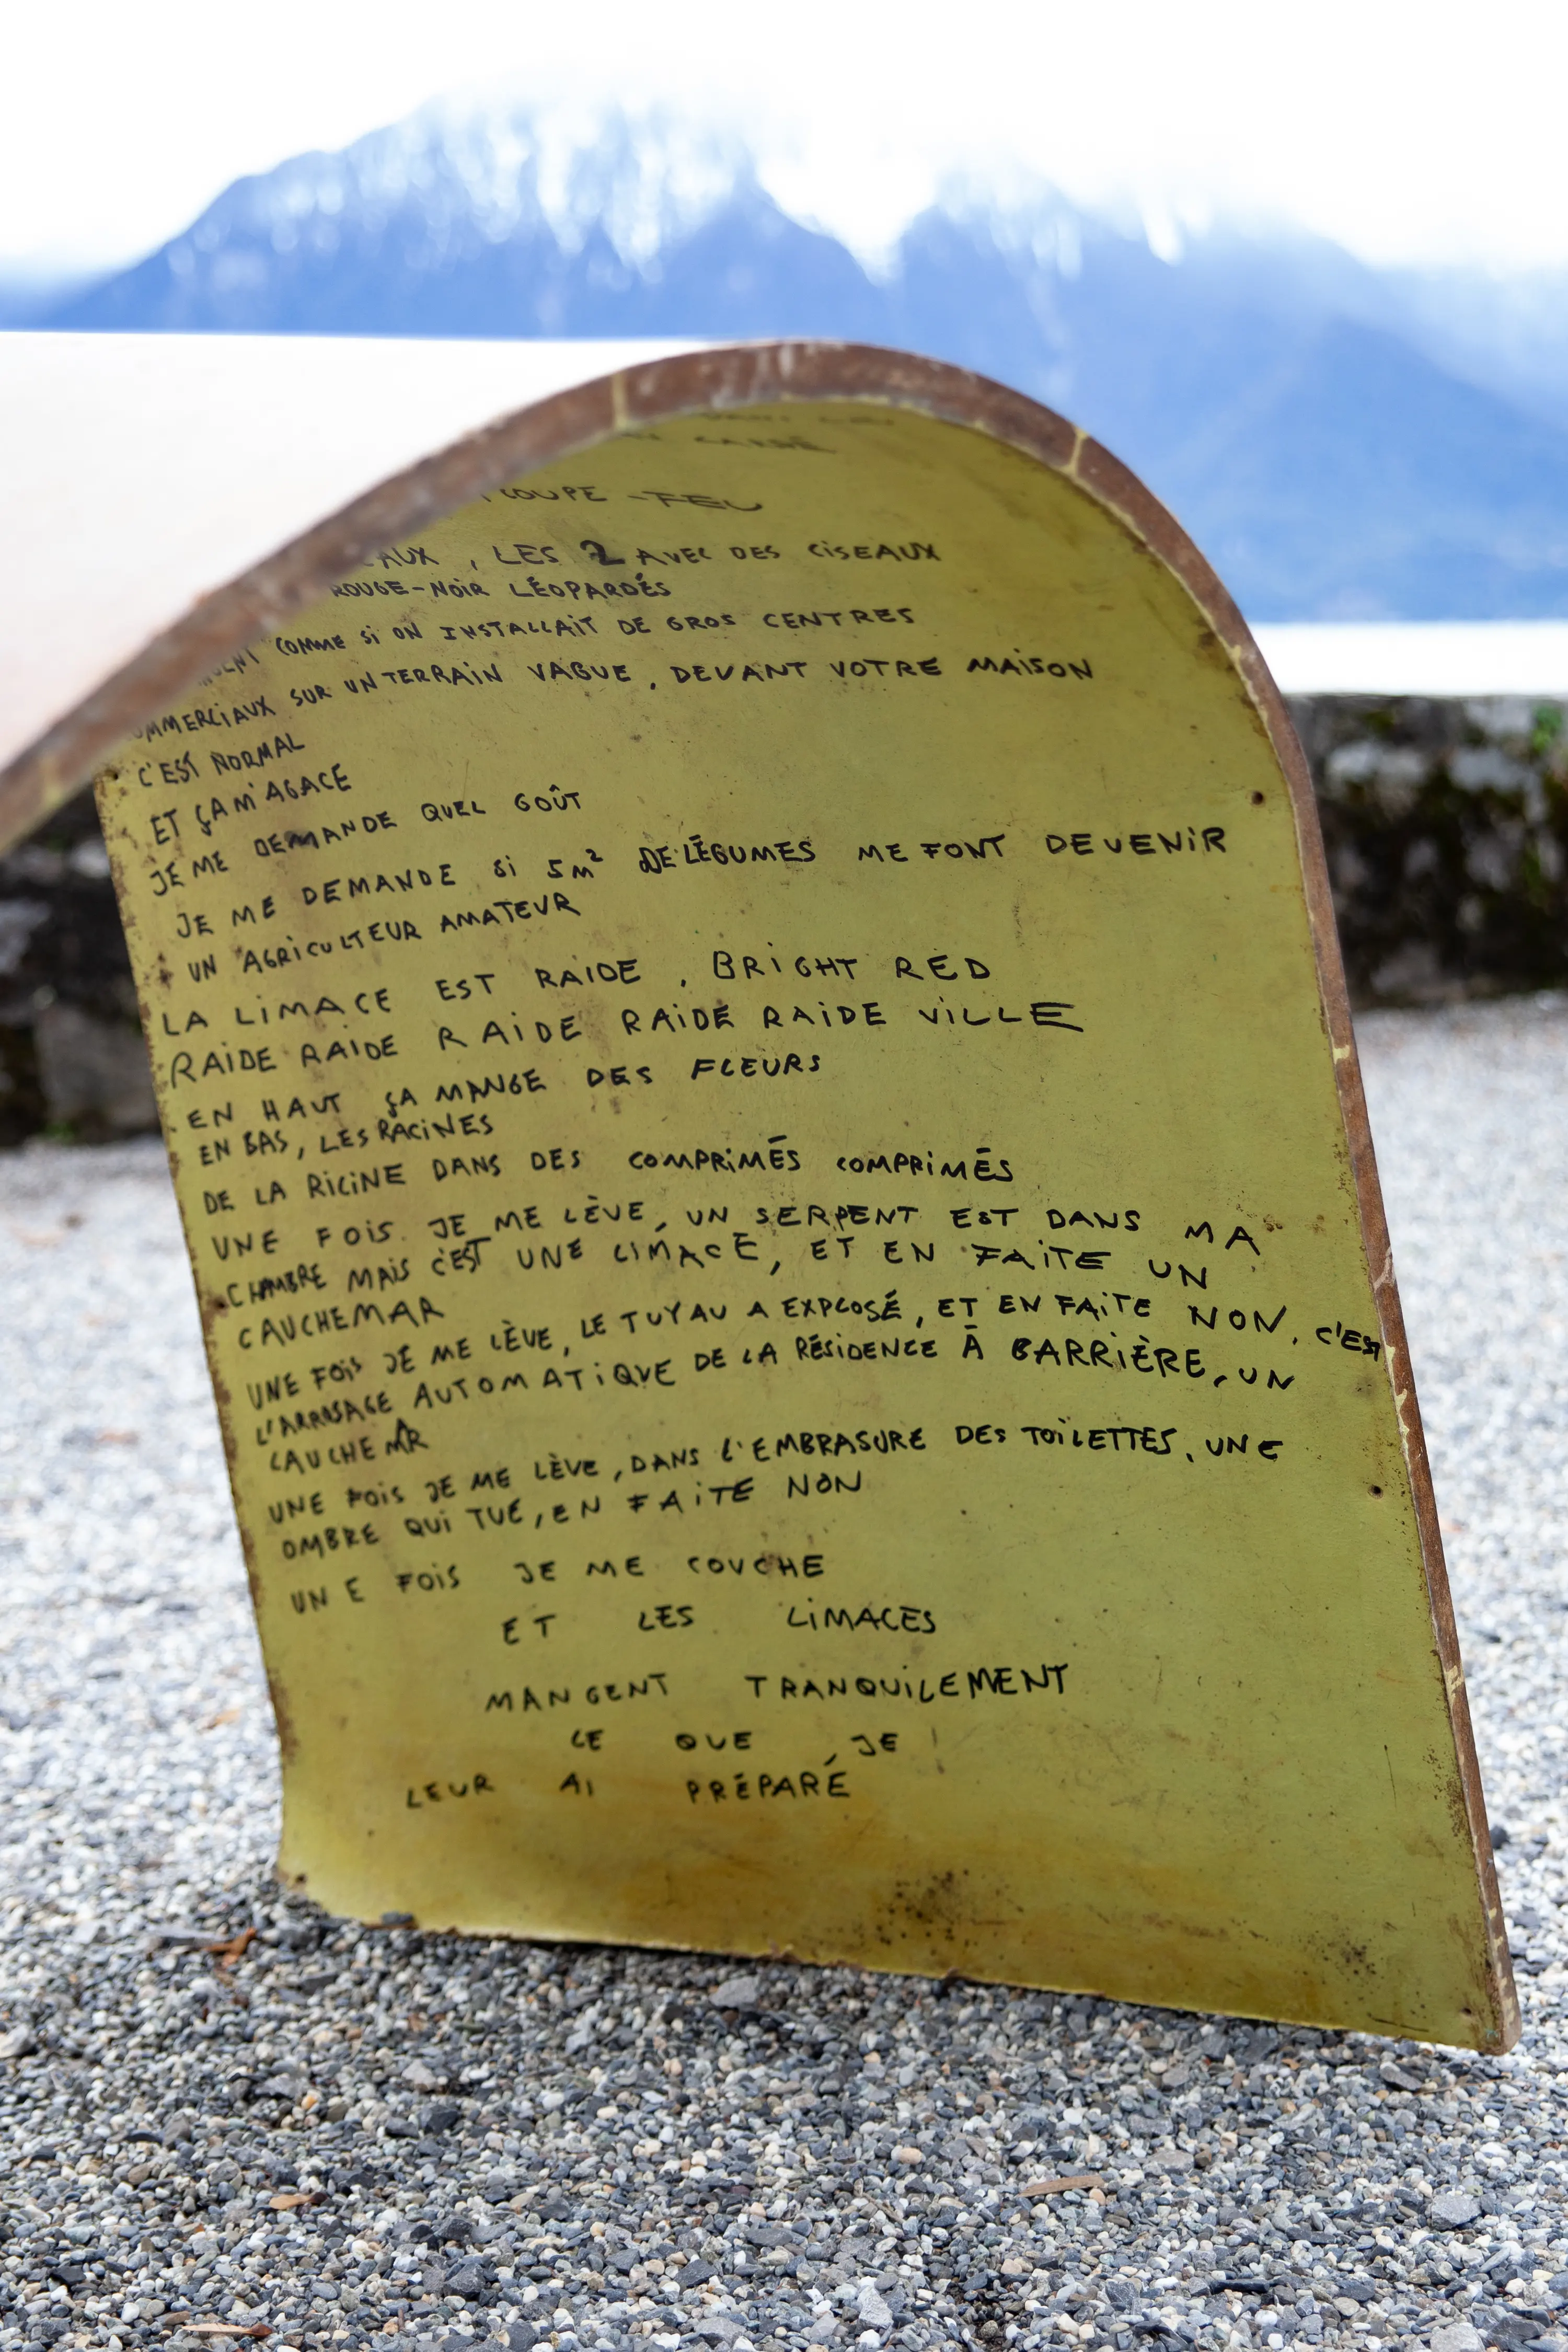 COUPE-FEU
, LES 2 AVEC DES CISEAUX
ROUGE-NOIR LÉOPARDÉS
COMME SI ON INSTALLAIT DE GROS CENTRES
SUR UN TERRAIN VAGUE, DEVANT VOTRE MAISON
C'EST NORMAL
ET ÇA M'AGACE
JE ME DEMANDE QUEL GOÛT
JE ME DEMANDE SI 5M² DE LÉGUMES ME FONT DEVENIR
UN AGRICULTEUR AMATEUR
LA LIMACE EST RAIDE, BRIGHT RED
RAIDE RAIDE RAIDE RAIDE RAIDE VILLE
EN HAUT ÇA MANGE DES FLEURS
EN BAS, LES RACINES
DE LA RICINE DANS DES COMPRIMÉS COMPRIMÉS
UNE FOIS JE ME LÈVE, UN SERPENT EST DANS MA
CHAMBRE MAIS C'EST UNE LIMACE, ET EN FAITE UN
CAUCHEMAR
UNE FOIS JE ME LÈVE, LE TUYAU A EXPLOSÉ, ET EN FAITE NON, C'EST
L'ARROSAGE AUTOMATIQUE DE LA RÉSIDENCE À BARRIÈRE, UN
CAUCHEMAR
UNE FOIS JE ME LÈVE, DANS L'EMBRASURE DES TOILETTES, UNE
OMBRE QUI TUE, EN FAITE NON
UNE FOIS JE ME COUCHE
ET LES LIMACES
MANGENT TRANQUILEMENT
CE QUE JE
LEUR AI PRÉPARÉ